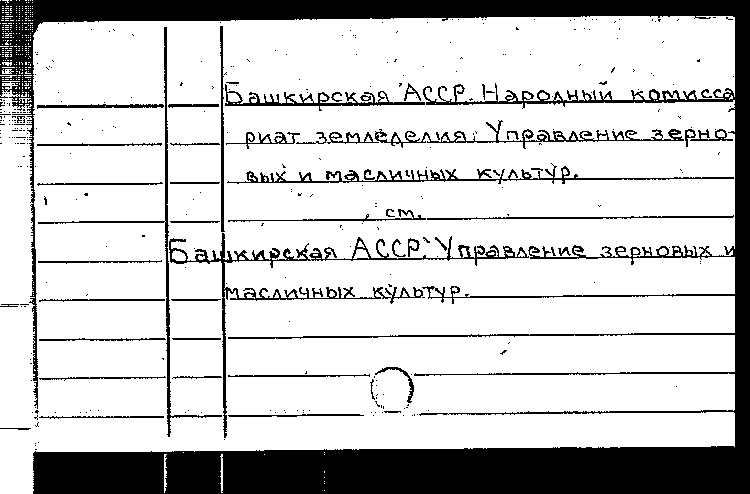 Башкирская АССР. Народный комисса
риат земледелия. Управление зерно-
вых и масличных культур.
см.
Башкирская АССР. Управление зерновых и
масличных культур.